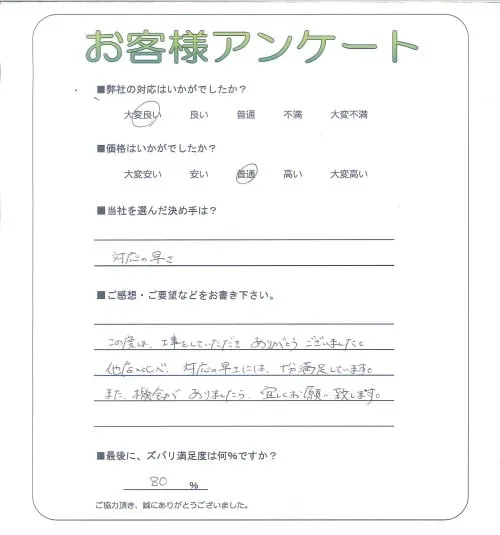 お客様アンケート
■弊社の対応はいかがでしたか？
大変良い 良い 普通 不満 大変不満
■価格はいかがでしたか？
大変安い 安い 普通 高い 大変高い
■当社を選んだ決め手は？
対応の早さ
■ご感想・ご要望などをお書き下さい。
この度は、工事をしていただき ありがとう ございました。
他店と比べ、対応の早さには、十分満足しています。
また、機会が ありましたら、宜しくお願い致します。
■最後に、ズバリ満足度は何%ですか？
80 %
ご協力頂き、誠にありがとうございました。